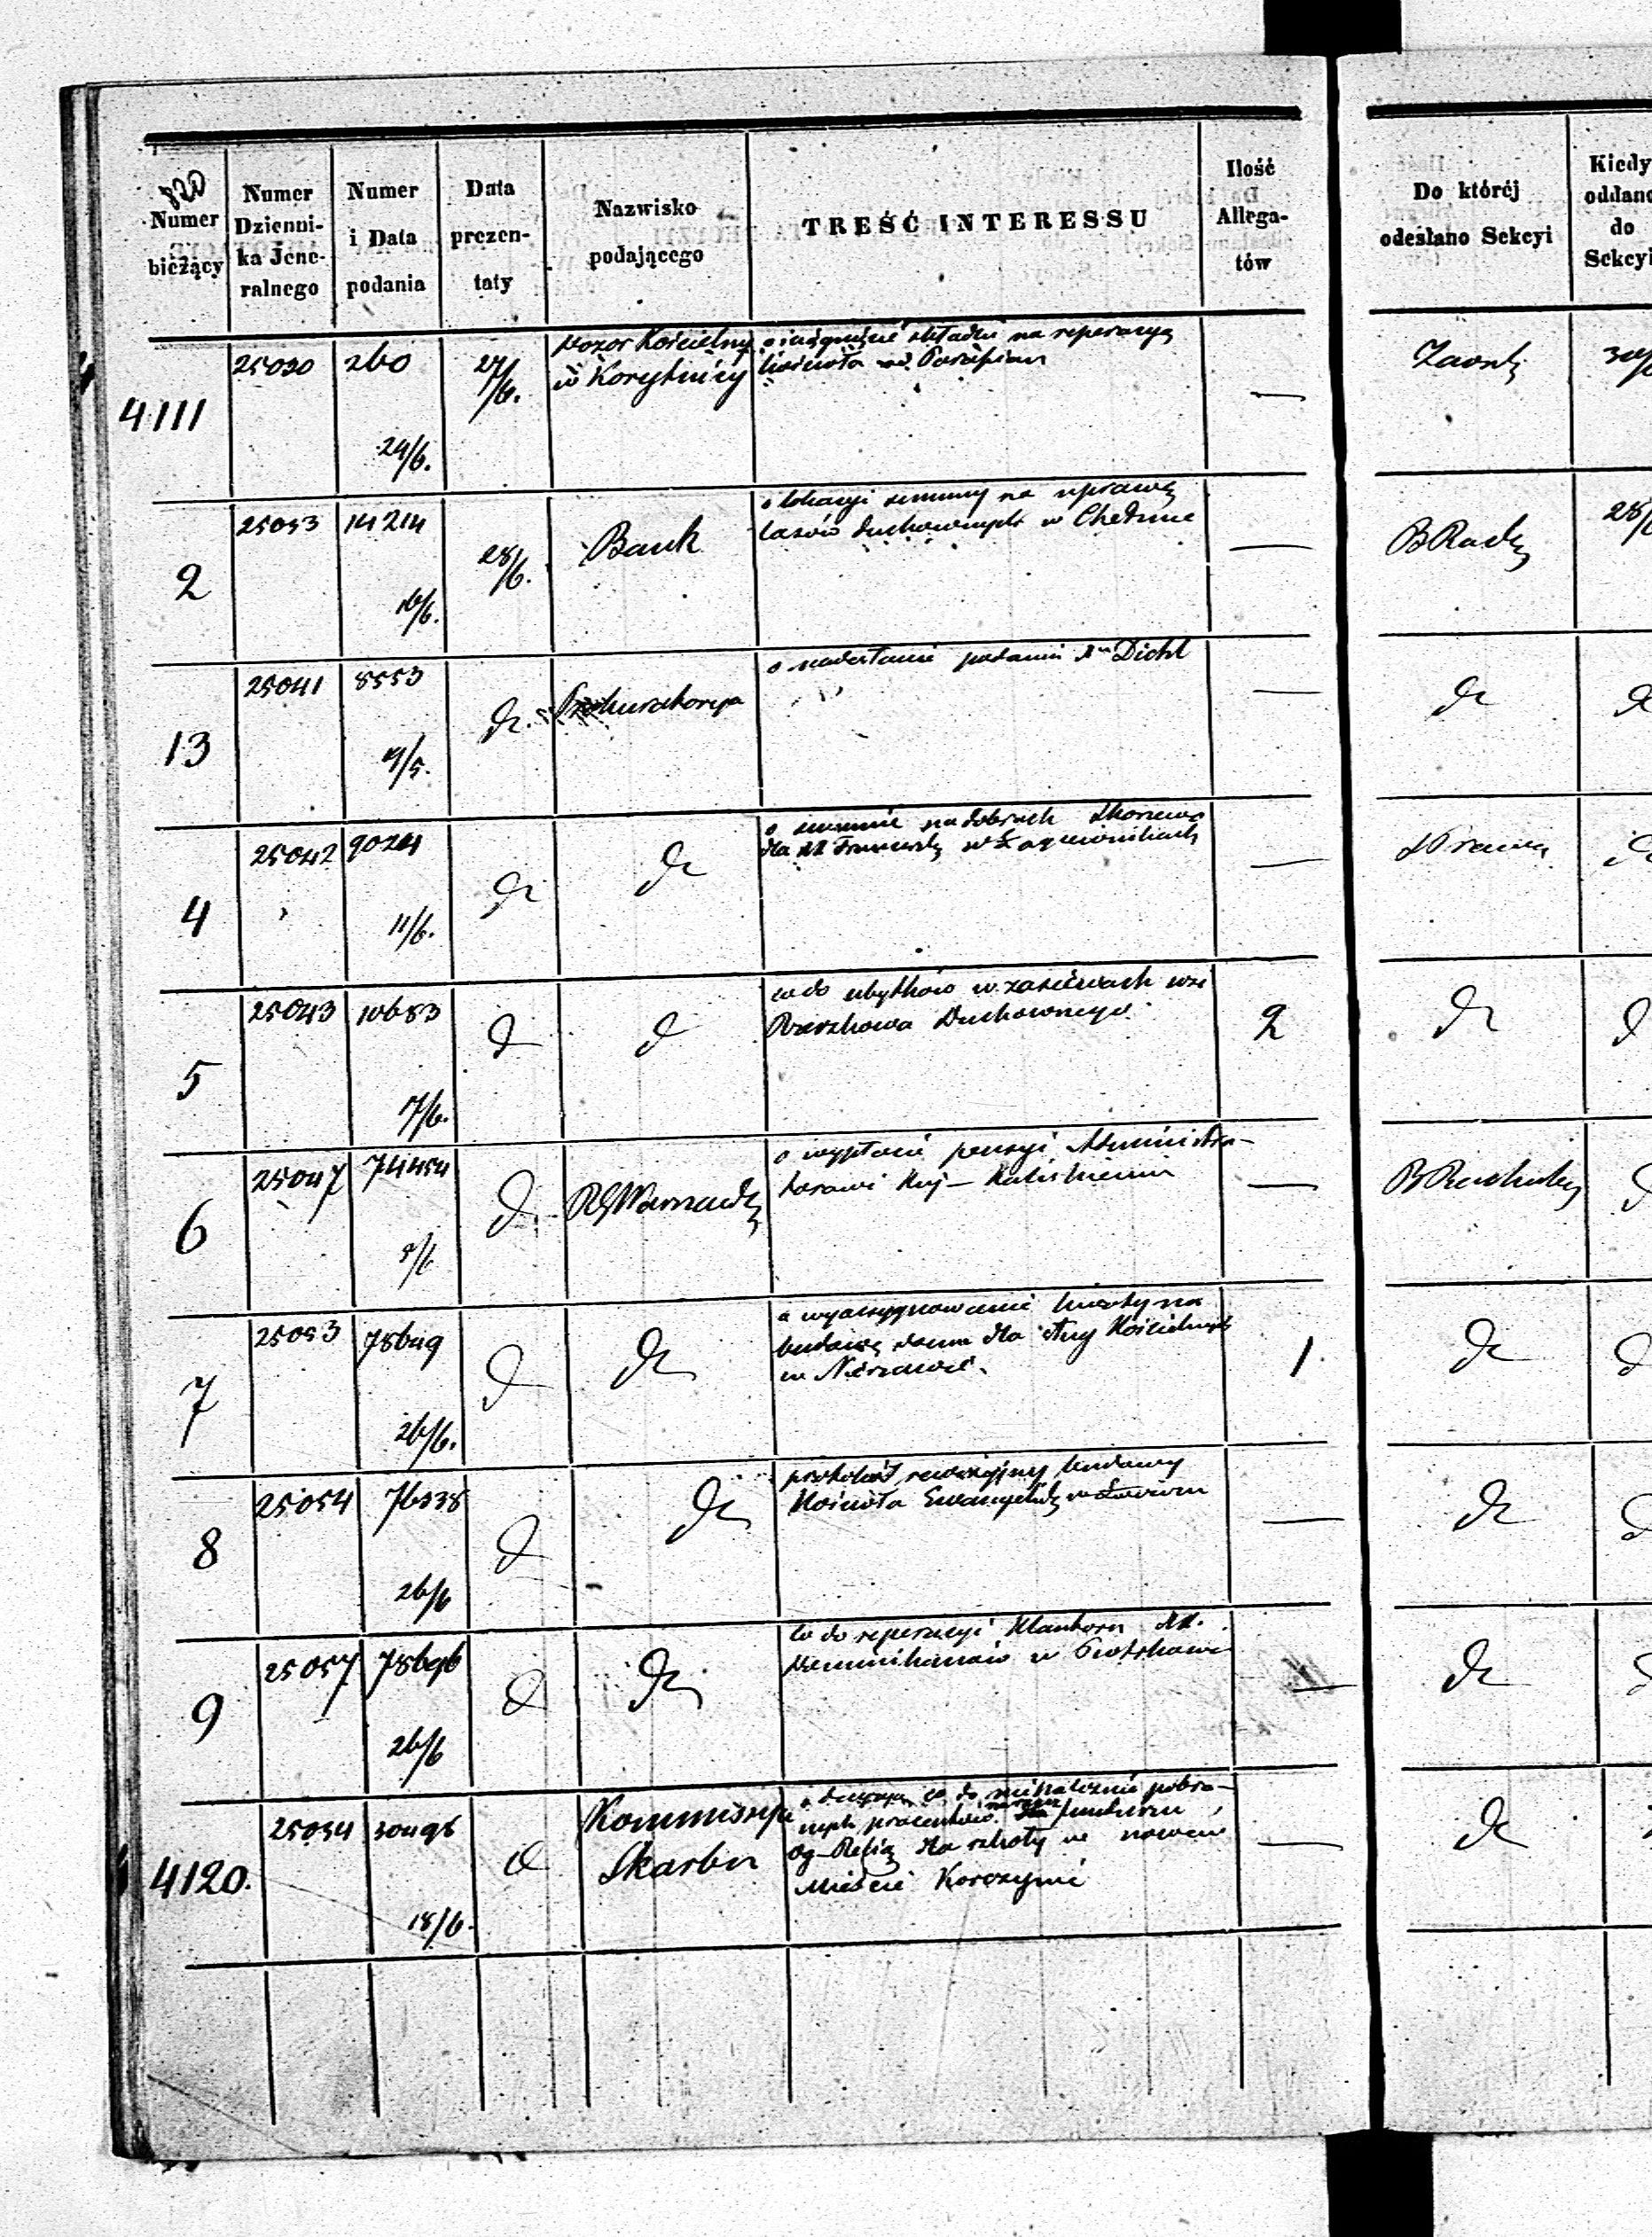 Numer bieżący
Numer Dzienni-ka Jene-ralnego
Numer i Data podania
Data prezen-taty
Nazwisko podającego
TREŚĆ INTERESSU
Ilość Allega-tów
Do któréj odesłano Sekcyi
Kiedy oddano do Sekcyi
4111
25030
260
24/6.
27/6.
Dozor Kościelny
w Korytnicy
o ściągnięcie składki na reperacyą
kościoła od Parafian
—
2
25033
14214
16/6.
28/6.
Bank
o lokacyi summy na uprawę
lasów duchownych w Chełmie
—
28/6
13
25041
8553
19/5.
dt.
Prokuratorya
o nadesłanie podania Dichl
—
dt
dt
4
25042
9024
11/6.
dt
dt
o summie na dobrach
w Łagiewnikach
—
5
25043
10683
7/6.
d
d
co do ubytków w zasiewach wsi
Duchownego
2
dt
d
6
25047
74454
5/6
d
RG Warszawska
o wypłacie pensyi Administra-
torowi Kuj-Kaliskiemu
—
d
7
25053
78649
26/6.
d
dt
o wyassygnowanie kwoty na
budowę domu dla sług Kościelnych
w Nieszawie.
1.
dt
d
8
25054
76338
26/6
d
dt
protokół rewizyjny budowy
Kościoła Ewangelickg
—
dt
d
9
25057
78696
26/6
d
dt
co do reperacyi Klasztoru XX.
Dominikanów w Piotrkowie
—
dt
d
4120.
25034
30498
18/6.
d
Kommissya
Skarbu
co do pobra-
nych procentów funduszu
dla szkoły w nowem
Mieście Korczynie
—
dt